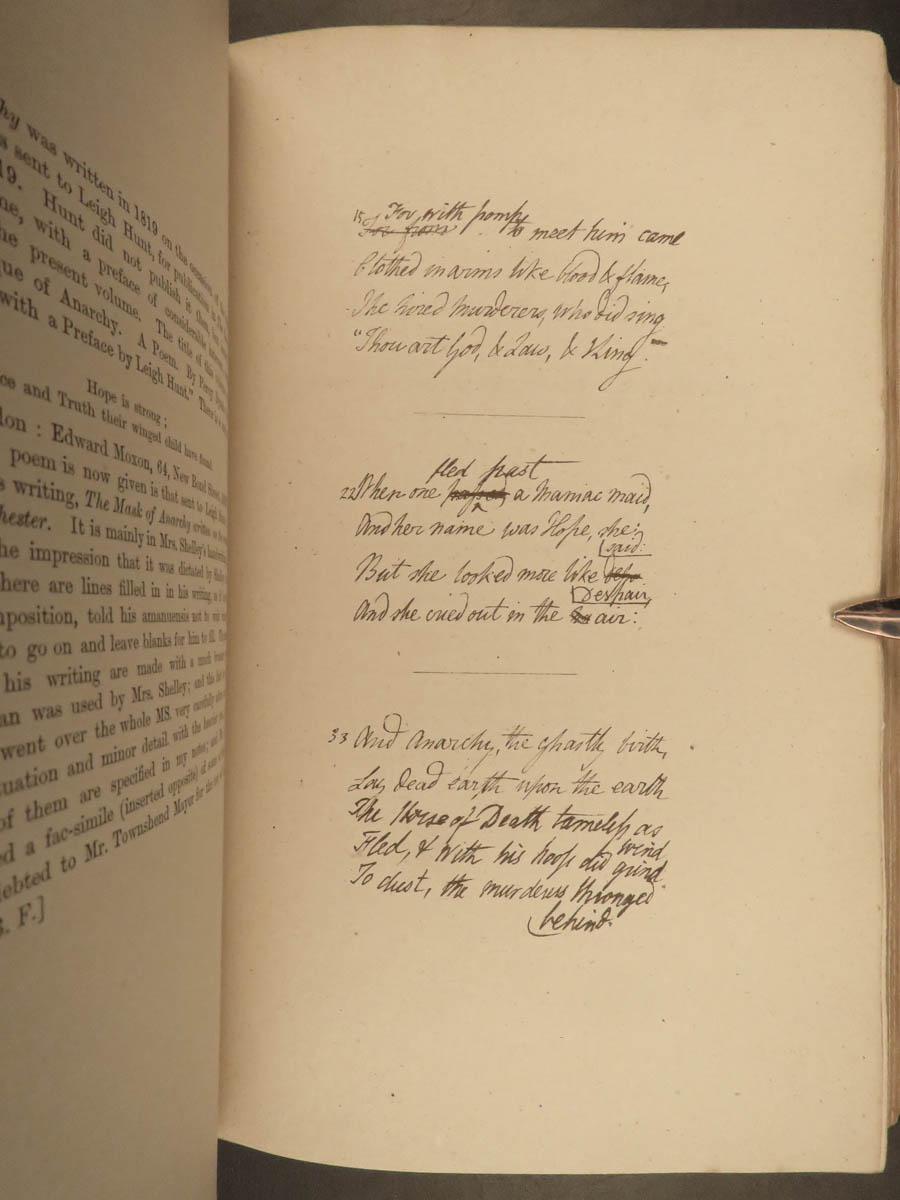 hy was written in 1819 on the occasion of
s sent to Leigh Hunt, for publication in
19. Hunt did not publish it then, but
me, with a preface of considerable
he present volume. The title of this
que of Anarchy. A Poem. By Percy
with a Preface by Leigh Hunt." There is a
Hope is strong;
ce and Truth their winged child have found
don: Edward Moxon, 64, New Bond Street,
poem is now given is that sent to Leigh Hunt
s writing, The Mask of Anarchy written on the
chester. It is mainly in Mrs. Shelley's handwriting
he impression that it was dictated by Shelley
here are lines filled in in his writing, as if
mposition, told his amanuensis not to wait
to go on and leave blanks for him to fill.
his writing are made with a much broader
an was used by Mrs. Shelley; and this
went over the whole MS. very carefully
tuation and minor detail with the heavier
of them are specified in my notes; and
ed a fac-simile (inserted opposite) of some
debted to Mr. Townshend Mayer for the
B. F.]
For with pomp
15 For from to meet him came
Clothed in arms like blood & flame,
The hired murderers, who did sing
"Thou art God, & Law, & King."
fled past
22 When one passed, a Maniac maid,
And her name was Hope, she
said:
But she looked more like desp
Despair,
And she cried out in the air:
33 And Anarchy, the ghastly birth,
Lay dead earth upon the earth
The Horse of Death tameless as
wind
Fled, & with his hoofs did grind
To dust, the murderers thronged
behind.